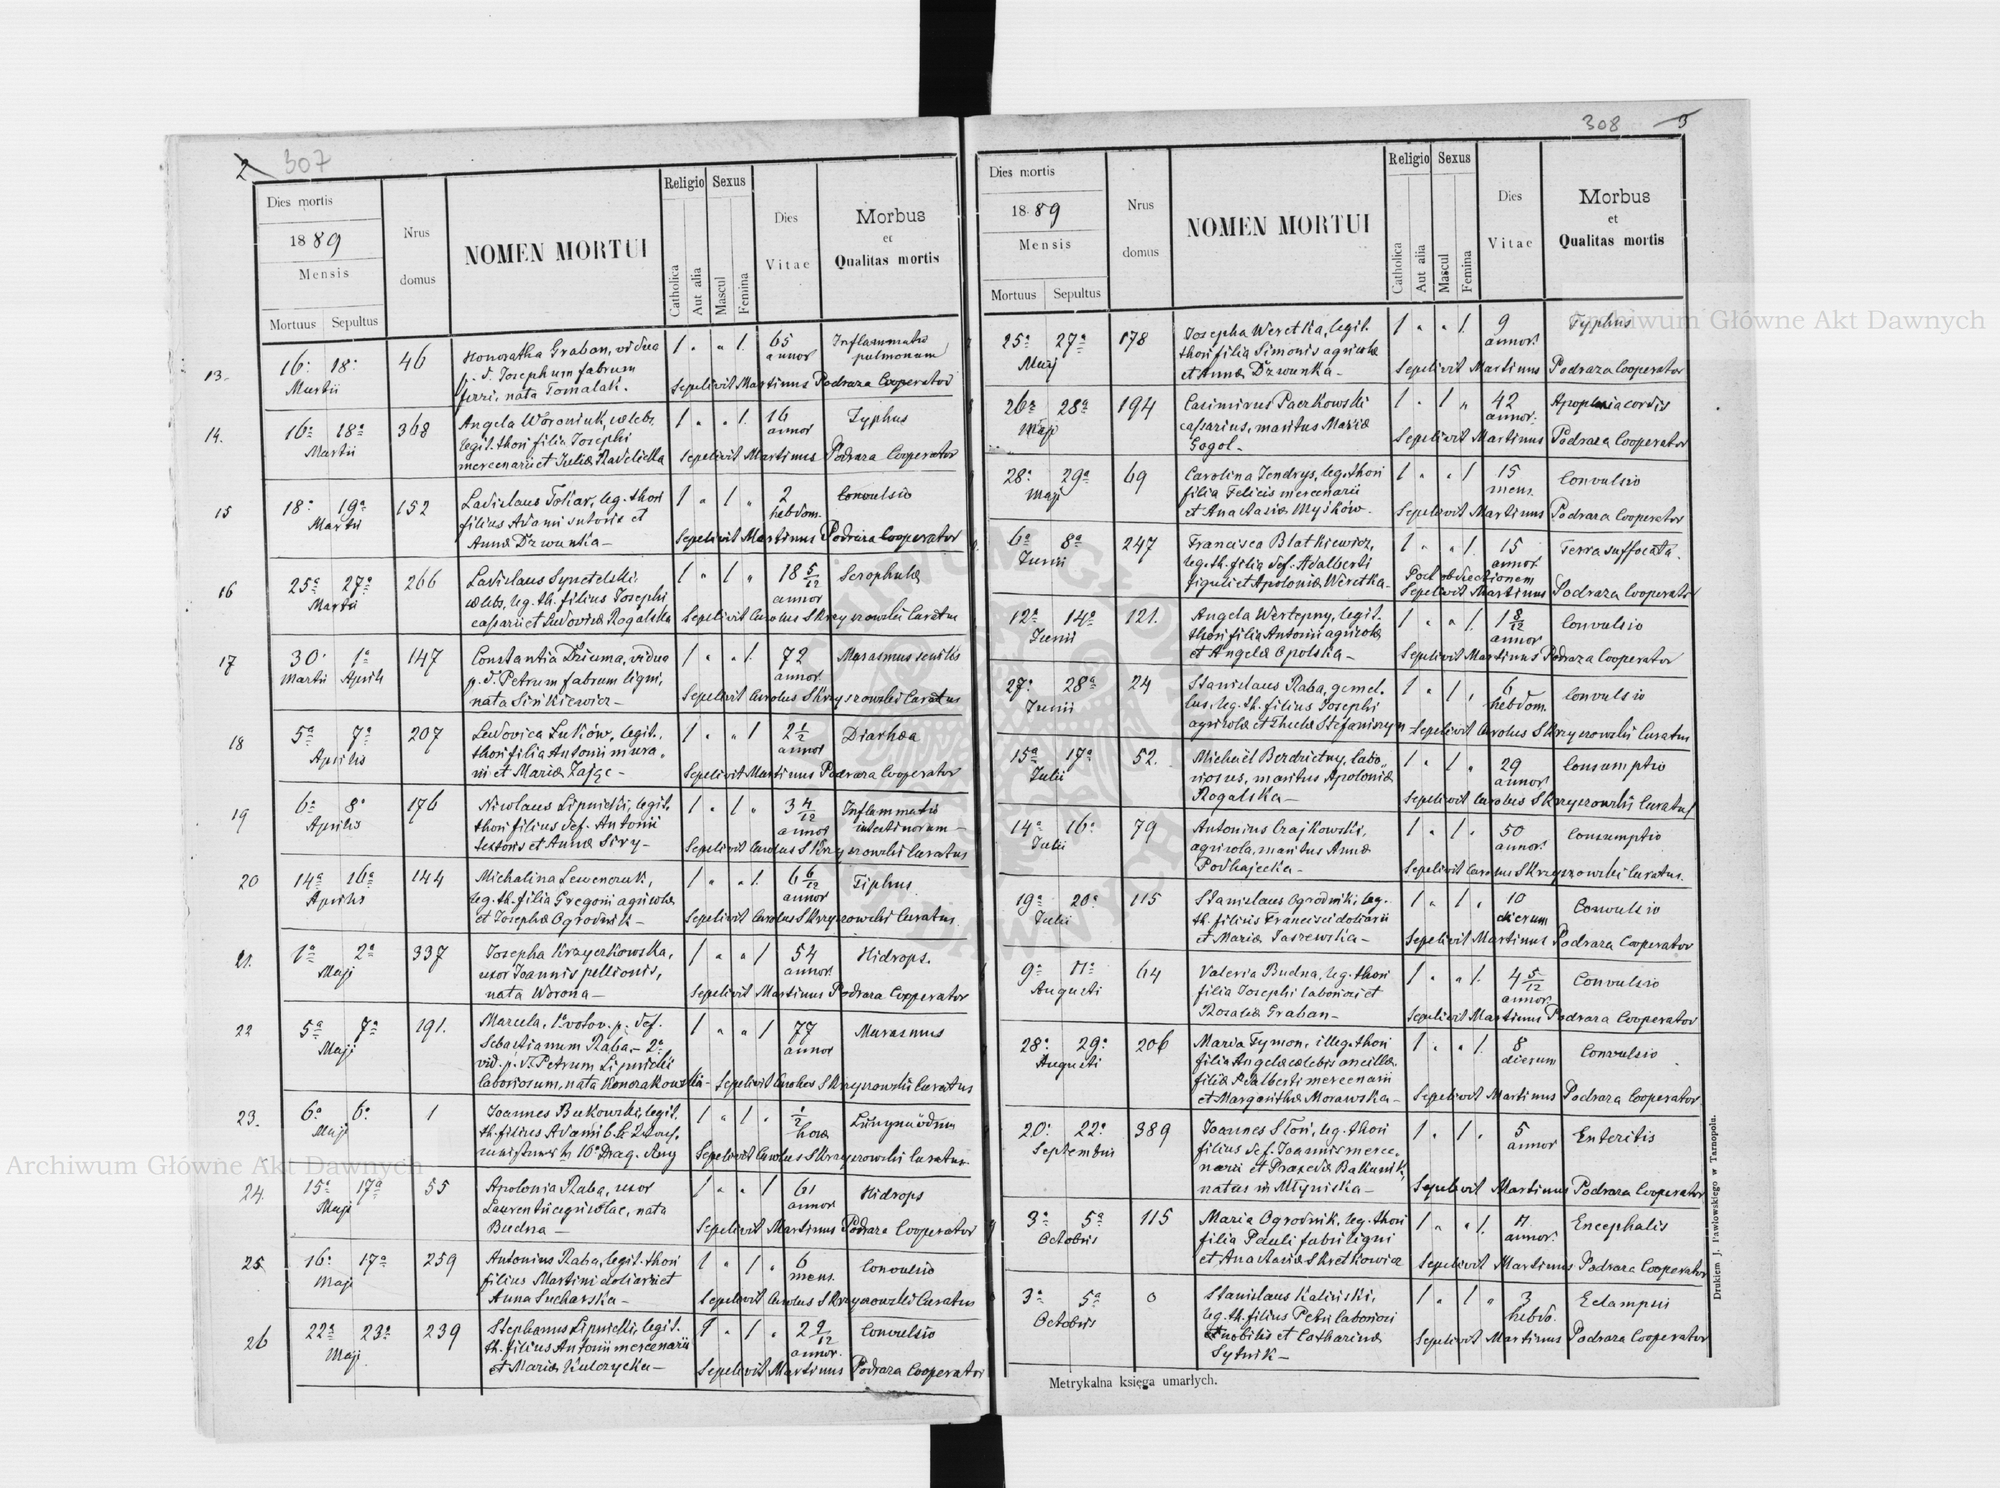 2 307
Dies mortis
1889
Mensis
Mortuus Sepultus
Nrus domus
NOMEN MORTUI
Religio Sexus
Catholica Aut alia Mascul Femina
Dies Vitae
Morbus et Qualitas mortis
13. 16. 18. Martii 46 Honoratha Graban, vidua 1 " " 1. 65 annor Inflammatio pulmonum
p. d. Josephum fabrum
ferri, nata Tomalak. Sepelivit Martinus Podraza Cooperator
14. 16a 18a Martii 368 Angela Woroniuk, caelebs, 1 " " 1. 16 annor Typhus
legit. thori filia Josephi
mercenarii et Juliae Sepelivit Martinus Podraza Cooperator
15 18. 19a Martii 152 Ladislaus Tokar, leg. thori 1 " 1 " 2 hebdom. Convulsio
filius Adami sutoris et
Annae Dzwunka — Sepelivit Martinus Podraza Cooperator
16 25a 27a Martii 266 Ladislaus 1 " 1 " 18 5/12 annor Scrophulae
caelebs, leg. th. filius Josephi
et Ludovicae Rogalska Sepelivit Carolus Skrzyszowski Curatus
17 30. Martii 1a Aprili 147 Constantia Dziuma, vidua 1 " " 1. 72 annor Marasmus senilis
p. d. Petrum fabrum ligni,
nata Sinkiewicz — Sepelivit Carolus Skrzyszowski Curatus
18 5a 7a Aprilis 207 Ludovica Łuków, legit. 1 " " 1 2 1/2 annor Diarhea
thori filia Antonii mura-
rii et Mariae Zając — Sepelivit Martinus Podraza Cooperator
19 6a 8a Aprilis 176 Nicolaus Lipnicki, legit. 1 " 1 " 3 4/12 annor Inflammatio intestinorum —
thori filius def. Antonii
textoris et Annae Siry — Sepelivit Carolus Skrzyszowski Curatus
20 14a 16a Aprilis 144 Michalina Lewenczuk, 1 " " 1. 6 6/12 annor Tiphus
leg. th. filia Gregorii agricolae
et Josephae Ogrodnik — Sepelivit Carolus Skrzyszowski Curatus
21. 1a 2a Maji 337 Josepha Krzyczkowska, 1 " " 1 54 annor. Hidrops.
uxor Joannis pellionis,
nata Worona — Sepelivit Martinus Podraza Cooperator
22 5a 7a Maji 191. Marcela, 1o votov. p. def. 1 " " 1 77 annor Marasmus
Sebastianum Raba, — 2o
vid. p. d. Petrum Lipnicki
laboriosum, nata — Sepelivit Carolus Skrzyszowski Curatus
23. 6a 6a Maji 1 Joannes Bukowski, legit. 1 " 1 " 1/2 horae
th. filius Adami
Sepelivit Carolus Skrzyszowski Curatus
24. 15a 17a Maji 55 Apolonia Raba, uxor 1 " " 1 61 annor Hidrops
Laurentii agricolae, nata
Budna — Sepelivit Martinus Podraza Cooperator
25 16. 17a Maji 259 Antonius Raba, legit. thori 1 " 1 " 6 mens. Convulsio
filius Martini doliarii et
Anna Sucharska — Sepelivit Carolus Skrzyszowski Curatus
26 22a 23a Maji 239 Stephanus Lipnicki, legit. 1 " 1 " 2 9/12 annor. Convulsio
th. filius Antonii mercenarii
et Mariae Kulczycka — Sepelivit Martinus Podraza Cooperator
308 3
Dies mortis
1889
Mensis
Mortuus Sepultus
Nrus domus
NOMEN MORTUI
Religio Sexus
Catholica Aut alia Mascul Femina
Dies Vitae
Morbus et Qualitas mortis
25a 27a Maji 178 Josepha Weretka, legit. 1 " " 1. 9 annor. Typhus
thori filia Simonis agricolae
et Annae Dzwunka — Sepelivit Martinus Podraza Cooperator
26a 28a Maji 194 Casimirus Paczkowski 1 " 1 " 42 annor. cordis
maritus Mariae
Gogol — Sepelivit Martinus Podraza Cooperator
28. 29a Maji 69 Carolina Jendrys, leg. thori 1 " " 1 15 mens. Convulsio
filia Felicis mercenarii
et Anastasiae Myśków. Sepelivit Martinus Podraza Cooperator
6a 8a Junii 247 Francisca Blatkiewicz, 1 " " 1. 15 annor. Terra suffocata.
leg. th. filia def. Adalberti Post obductionem
figuli et Apoloniae Weretka — Sepelivit Martinus Podraza Cooperator
12a 14a Junii 121. Angela Wertepny, legit. 1 " " 1. 1 8/12 annor Convulsio
thori filia Antonii agricolae
et Angelae Opolska — Sepelivit Martinus Podraza Cooperator
27. 28a Junii 24 Stanislaus Raba, gemel- 1 " 1 " 6 hebdom. Convulsio
lus, leg. th. filius Josephi
agricolae et Theclae Stefaniszyn — Sepelivit Carolus Skrzyszowski Curatus
15a 17a Julii 52. Michaël Bezdrietny, labo- 1 " 1 " 29 annor. Consumptio
riosus, maritus Apoloniae
Rogalska — Sepelivit Carolus Skrzyszowski Curatus
14a 16a Julii 79 Antonius Czajkowski, 1 " 1 " 50 annor. Consumptio
agricola, maritus Annae
Podhajecka — Sepelivit Carolus Skrzyszowski Curatus.
19a 20a Julii 115 Stanislaus Ogrodnik, leg. 1 " 1 " 10 dierum Convulsio
th. filius Francisci doliarii
et Mariae Jaszewska — Sepelivit Martinus Podraza Cooperator
9a 11a Augusti 64 Valeria Budna, leg. thori 1 " " 1. 4 5/12 annor. Convulsio
filia Josephi laboriosi et
Rosaliae Graban — Sepelivit Martinus Podraza Cooperator
28a 29a Augusti 206 Maria Tymon, illeg. thori 1 " " 1. 8 dierum Convulsio
filia Angelae caelebis ancillae,
filiae Adalberti mercenarii
et Margarithae Morawska — Sepelivit Martinus Podraza Cooperator
20. 22. Septembris 389 Joannes Słoń, leg. thori 1 " 1 " 5 annor Enteritis
filius def. Joannis merce-
narii et Praxedae Bakunik,
natus in Młyniska — Sepelivit Martinus Podraza Cooperator
3a 5a Octobris 115 Maria Ogrodnik, leg. thori 1 " " 1. 11 annor. Encephalis
filia Pauli fabri ligni
et Anastasiae Skretkowicz Sepelivit Martinus Podraza Cooperator
3a 5a Octobris 0 Stanislaus Kaliński, 1 " 1 " 3 hebdo. Eclampsii
leg. th. filius Petri laboriosi
nobilis et Catharinae
Sytnik — Sepelivit Martinus Podraza Cooperator
Metrykalna księga umarłych.
Drukiem J. Pawłowskiego w Tarnopolu.
Archiwum Główne Akt Dawnych
Archiwum Główne Akt Dawnych